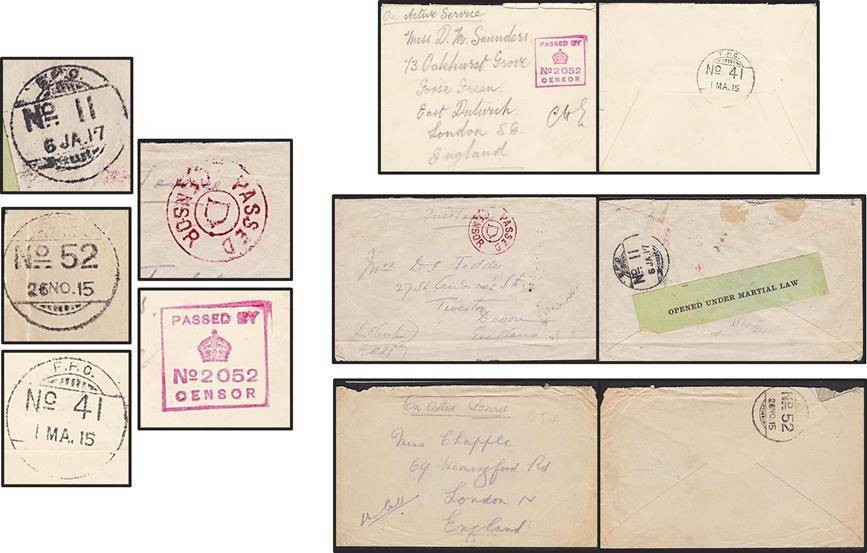 F.P.O.
No 11
6 JA.17
No 52
26 NO.15
F.P.O.
No 41
1 MA.15
PASSED
CENSOR
D
PASSED BY
No 2052
CENSOR
On Active Service
Miss. D. M. Saunders.
13 Oakhurst Grove
Goose Green.
East Dulwich.
London S.E.
England
PASSED BY
No 2052
CENSOR
F.P.O.
No 41
1 MA.15
Mrs D E
Tiverton
Devon
England
PASSED
CENSOR
D
F.P.O.
No 11
6 JA.17
OPENED UNDER MARTIAL LAW
On Active Service
Miss Chapple
69 Hemingford Rd
London N
England
No 52
26 NO.15